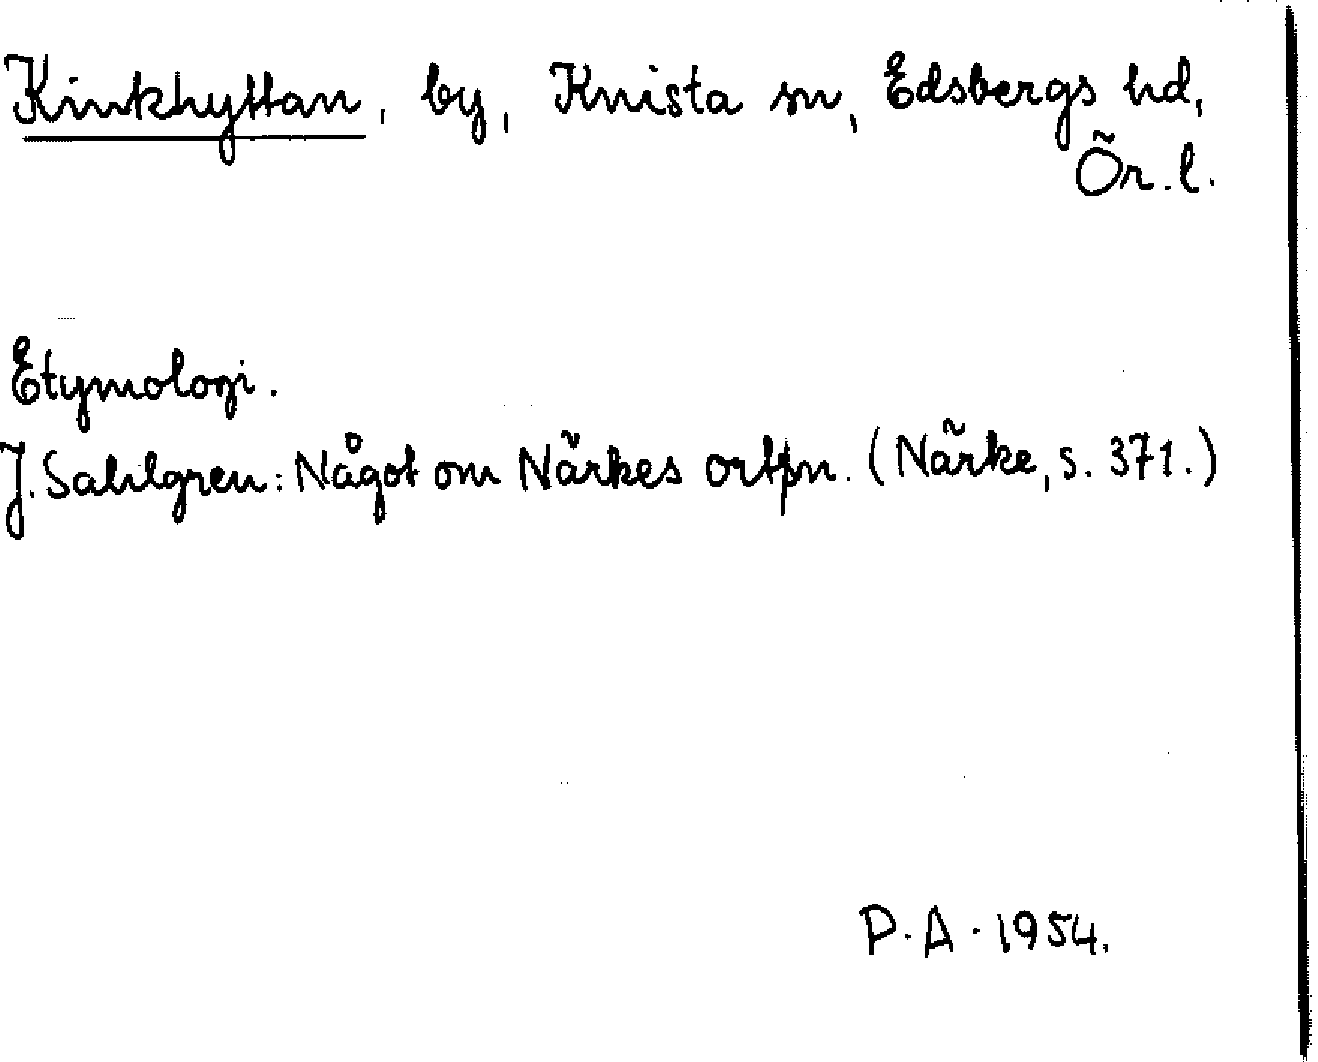 Kinkhyttan, by, Knista sn, Edsbergs hd,
Ör. l.
Etymologi.
J. Sahlgren: Något om Närkes ortpn. (Närke, s. 371.)
P. A. 1954.